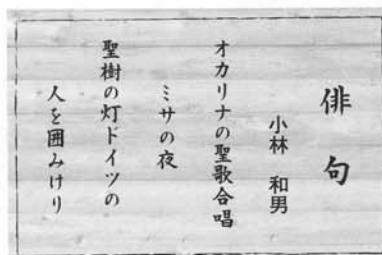 俳句
小林 和男
オカリナの聖歌合唱
ミサの夜
聖樹の灯ドイツの
人を囲みけり